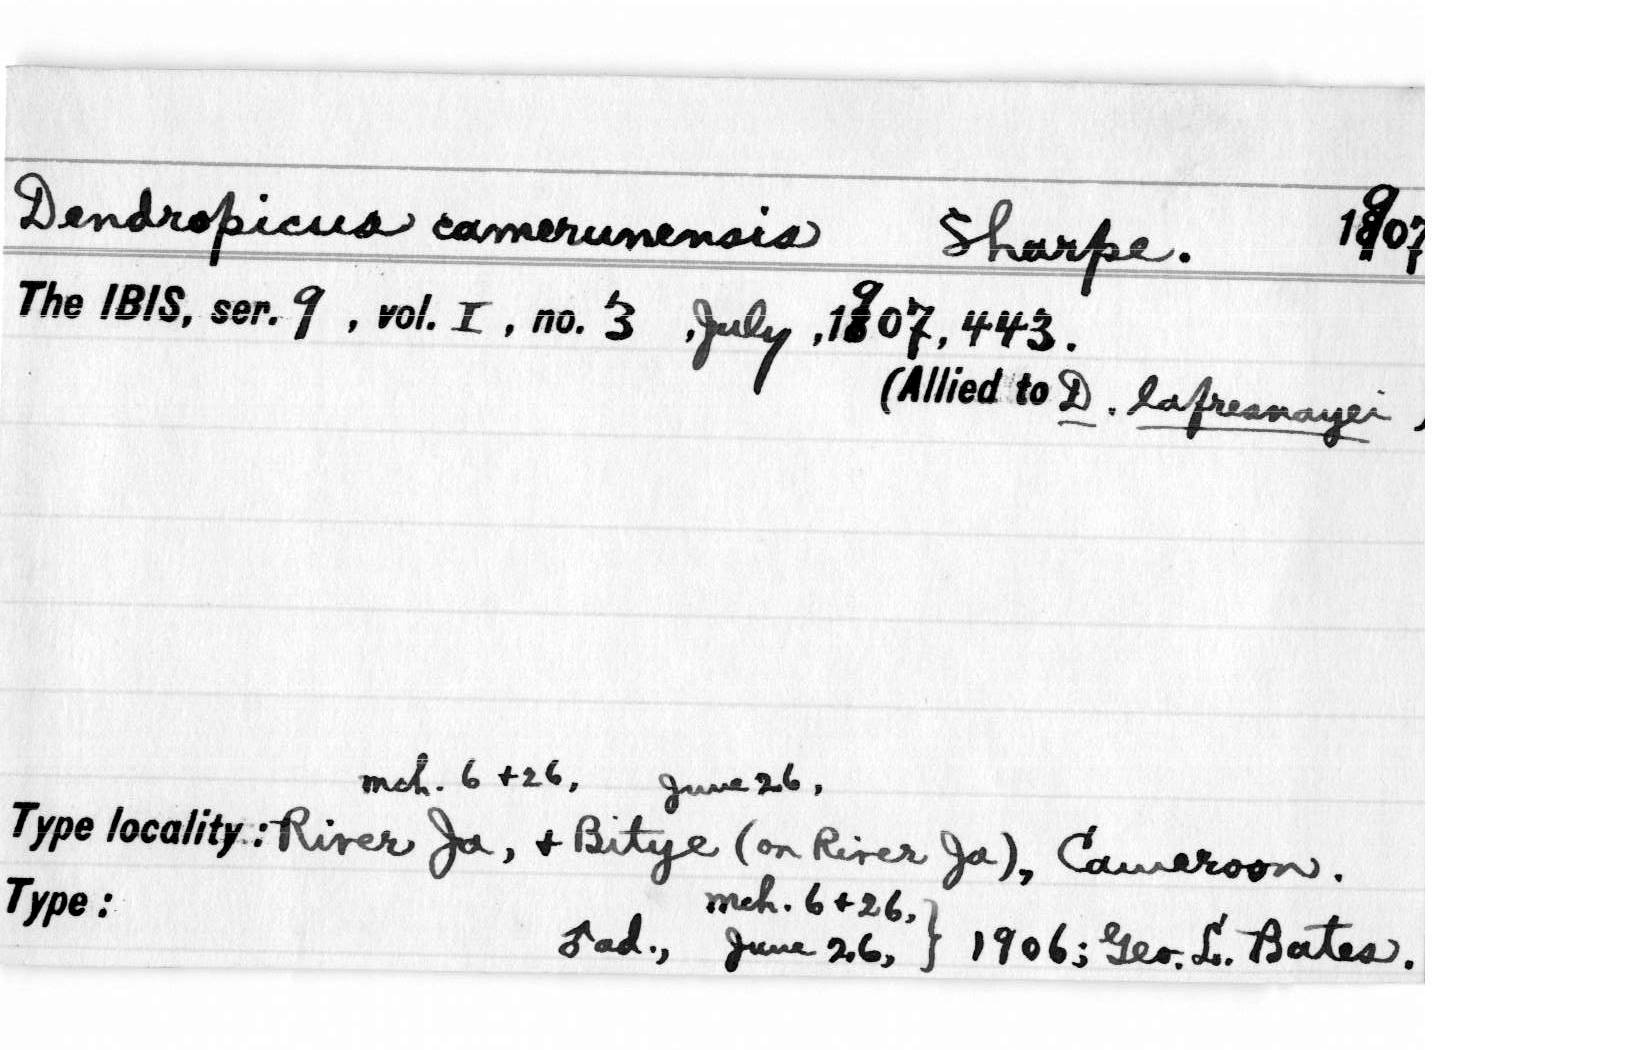 Dendropicus camerunensis Sharpe. 1907
The IBIS, ser. 9, vol. I, no. 3, July, 1907, 443.
(Allied to D. lafresnayei)
mch. 6 + 26, June 26,
Type locality: River Ja, + Bitye (on River Ja), Cameroon.
Type:
mch. 6 + 26,
ad., June 26, } 1906; Geo. L. Bates.